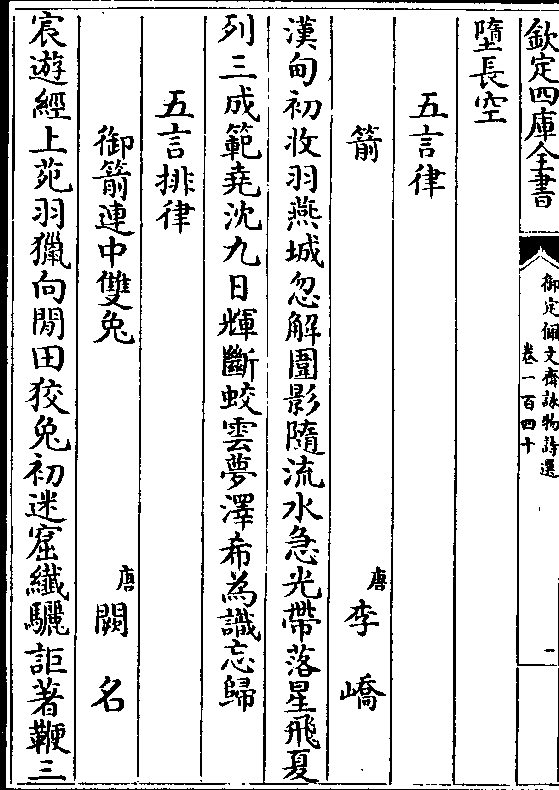 欽定四庫全書
御定佩文齋詠物詩選
卷一百四十
一
墮長空
五言律
箭 唐 李嶠
漢甸初收羽燕城忽解圍影隨流水急光帶落星飛夏
列三成範堯沈九日輝斷蛟雲夢澤希為識忘歸
五言排律
御箭連中雙兔 唐 闕名
宸遊經上苑羽獵向閒田狡兔初迷窟纖驪詎著鞭三